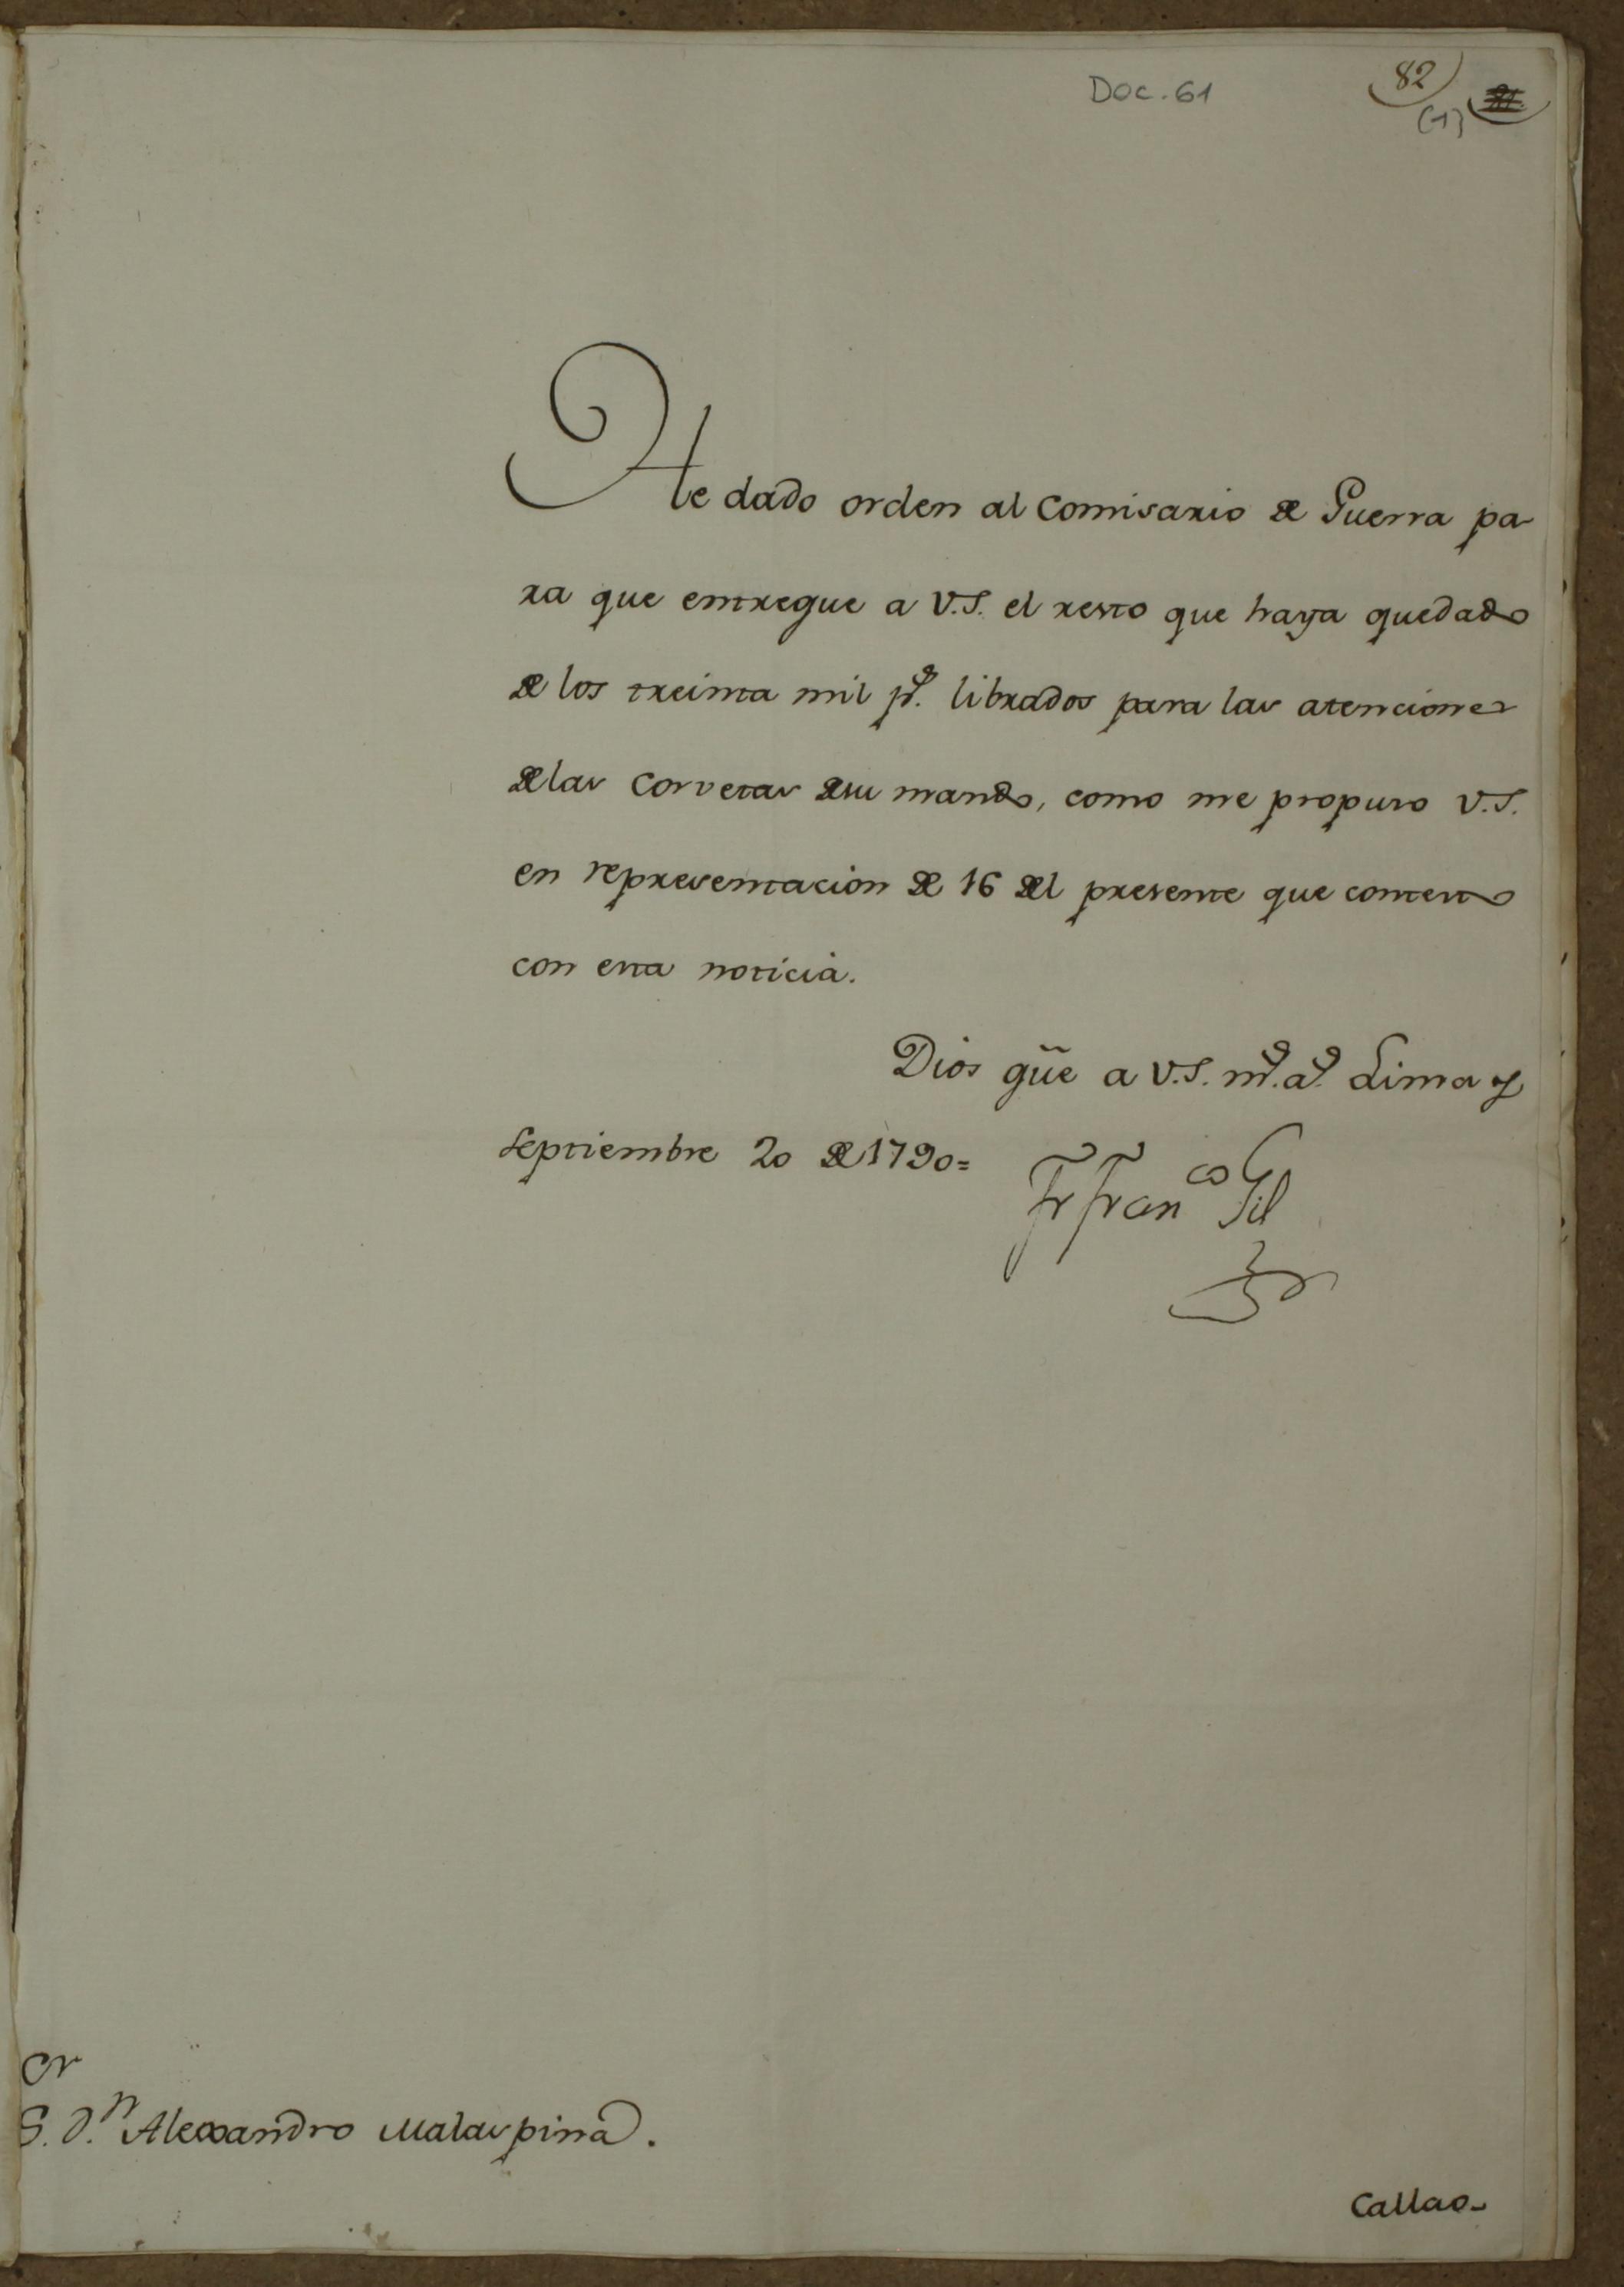 Doc. 61
82
(1)
He dado orden al Comisario de Guerra pa-
ra que entregue a V.S. el resto que haya quedado
de los treinta mil ps. librados para las atenciones
delas Corvetas desu mando, como me propuso V.S.
en representacion de 16 del presente que contesto
con esta noticia.
Dios gũe a V.S. ms. as. Lima y
Septiembre 20 de 1790=
Fr Franco Gil
Sr
S. Dn Alexandro Malaspina.
Callao-